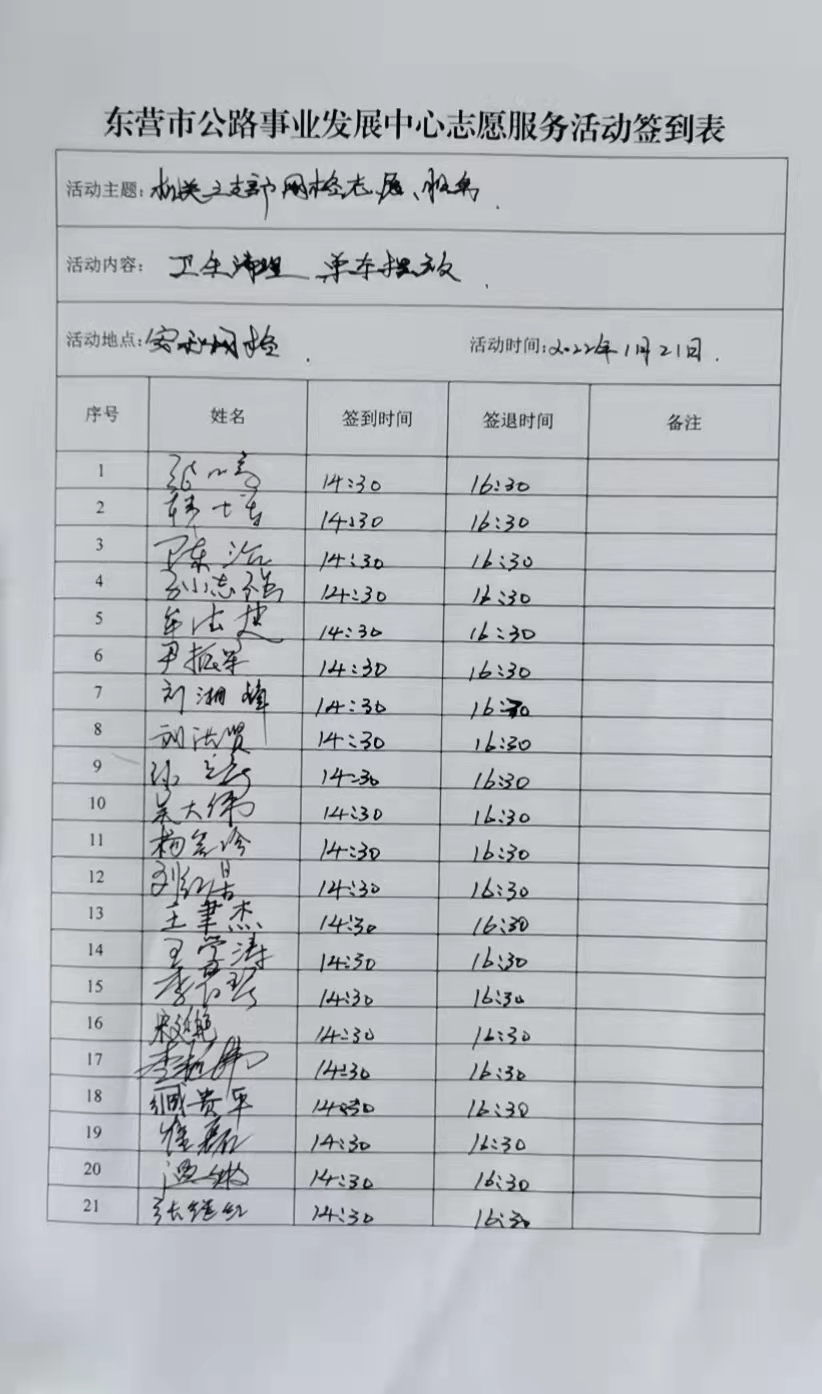 东营市公路事业发展中心志愿服务活动签到表
活动主题: 机关三支部网格志愿服务
活动内容: 卫生清理 单车摆放
活动地点: 网格 活动时间: 2022年1月21日.
序号 姓名 签到时间 签退时间 备注
1 14:30 16:30
2 14:30 16:30
3 14:30 16:30
4 14:30 16:30
5 14:30 16:30
6 尹振军 14:30 16:30
7 刘湘峰 14:30 16:30
8 刘洪贤 14:30 16:30
9 14:30 16:30
10 吴大伟 14:30 16:30
11 14:30 16:30
12 14:30 16:30
13 王聿杰 14:30 16:30
14 王学涛 14:30 16:30
15 14:30 16:30
16 宋文艳 14:30 16:30
17 14:30 16:30
18 臧贵平 14:30 16:30
19 崔磊 14:30 16:30
20 14:30 16:30
21 张继红 14:30 16:30